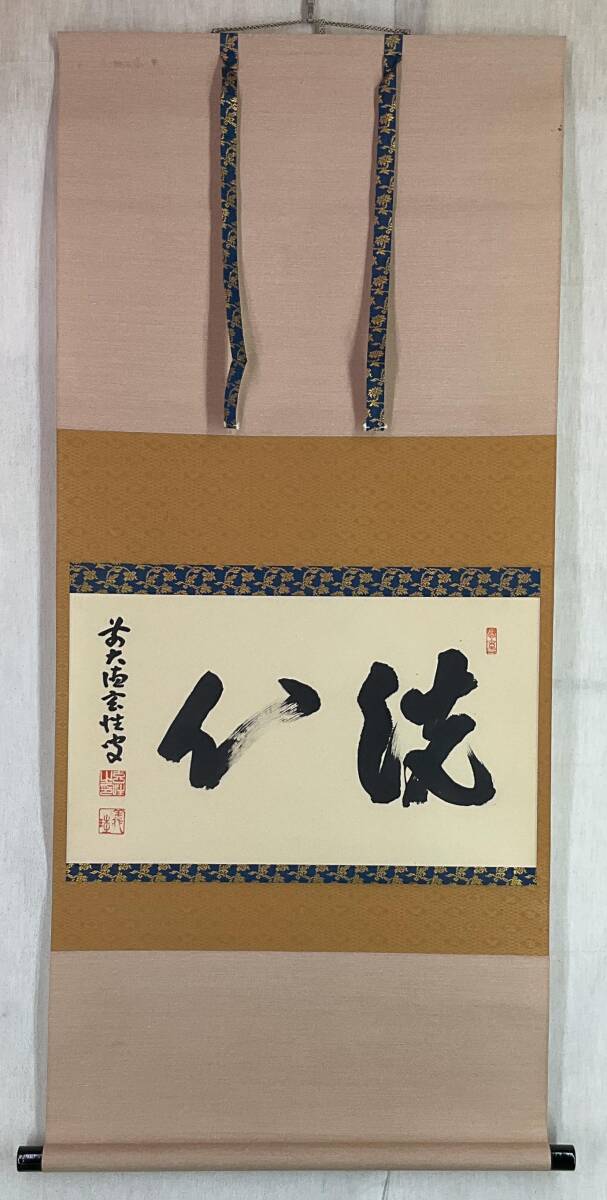 洗心
前大徳玄性叟